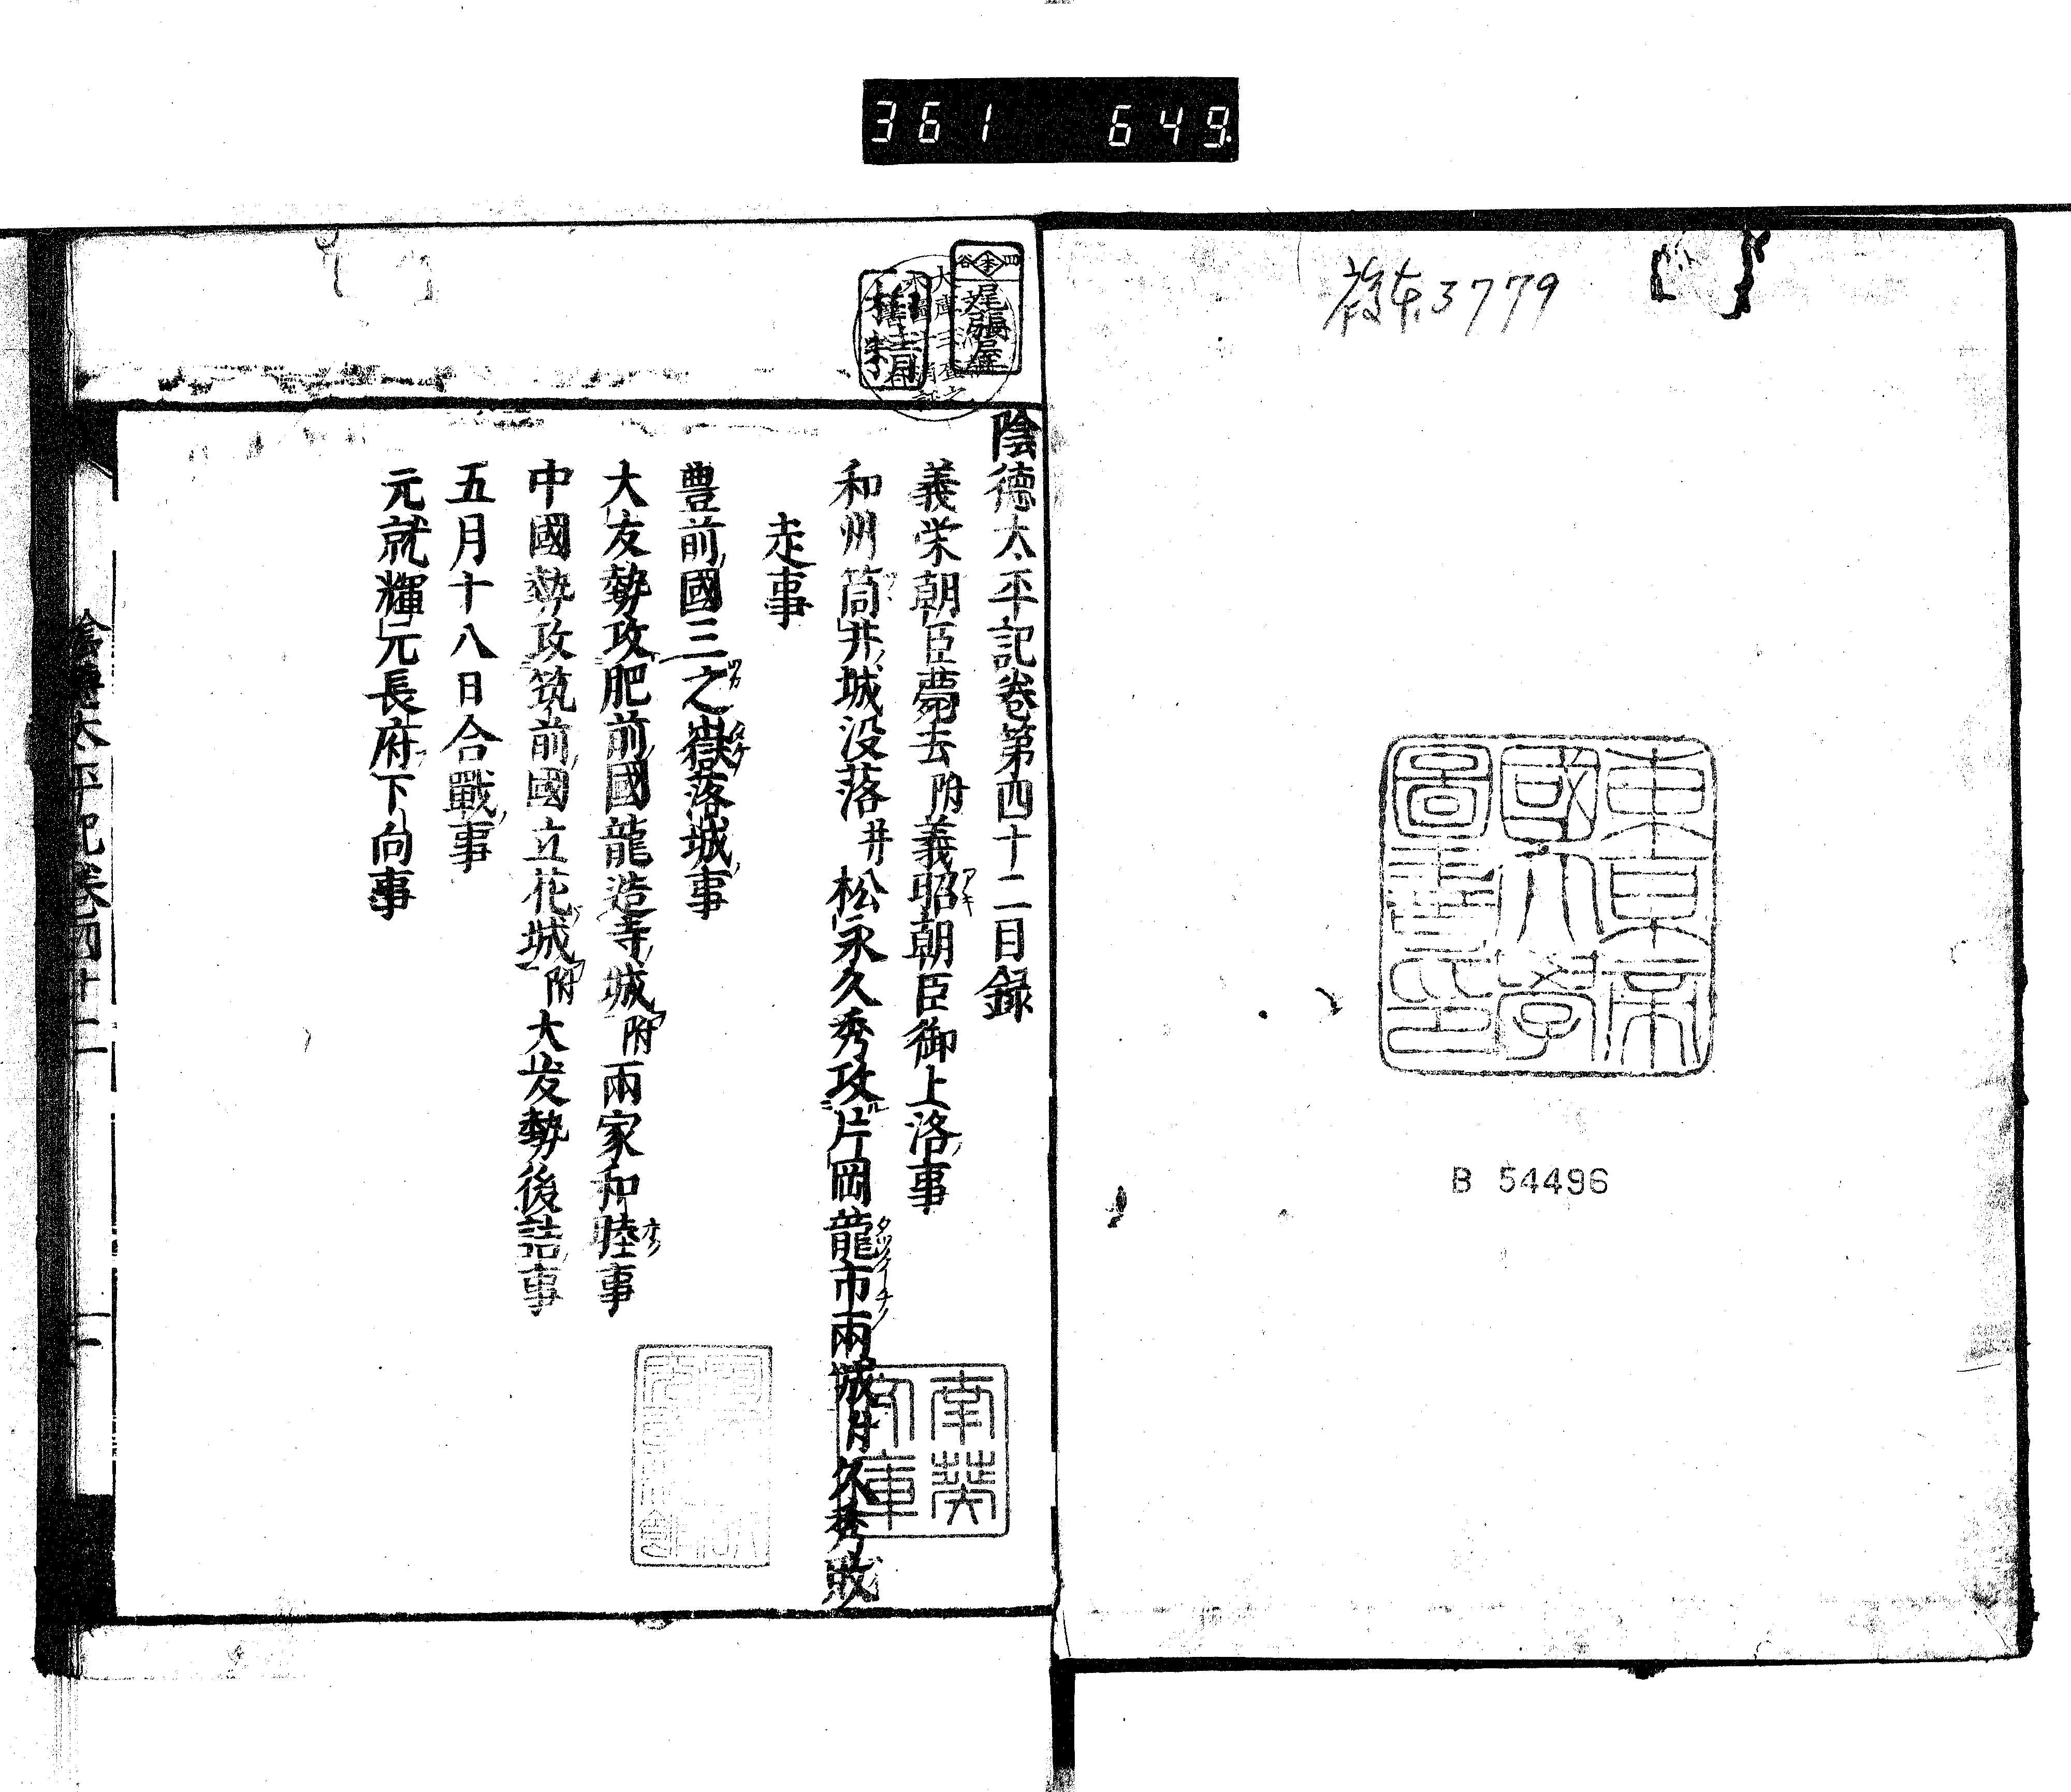 361 649
塚本3779
東京帝
國大學
圖書印
B 54496
四谷
尾張屋
陰德太平記卷第四十二目録
義栄朝臣薨去附義昭朝臣御上洛事
和州筒井城没落并松永久秀攻片岡龍市兩城付久秀敗
走事
豊前國三之嶽落城事
大友勢攻肥前國龍造寺城附兩家和睦事
中國勢攻筑前國立花城附大友勢後詰事
五月十八日合戰事
元就輝元長府下向事
南葵
文庫
陰德太平記卷四十二
一